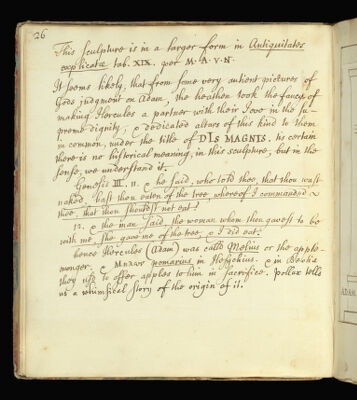 26
This sculpture is in a larger form in Antiquitates
explicatæ tab. XIX. per M. A. V. N.
It seems likely, that from some very antient pictures of
Gods judgment on Adam, the heathen took the fancy of
making Hercules a partner with their Jove in the su-
preme dignity; & dedicated altars of this kind to them
in common, under the title of DIS MAGNIS. tis certain
there is no historical meaning, in this sculpture, but in the
sense, we understand it.
Genesis III. 11. & he said, who told thee, that thou wast
naked, hast thou eaten of the tree, whereof I commanded
thee, that thou shouldst not eat?
12. & the man said, the woman whom thou gavest to be
with me, she gave me of the tree, & I did eat.
hence Hercules (Adam) was called Melius or the apple-
monger. & pomarius in Hesychius. & in Bœotia
they us'd to offer apples to him in Sacrifice. Pollux tells
us a whimsical story of the origin of it.
ADAM